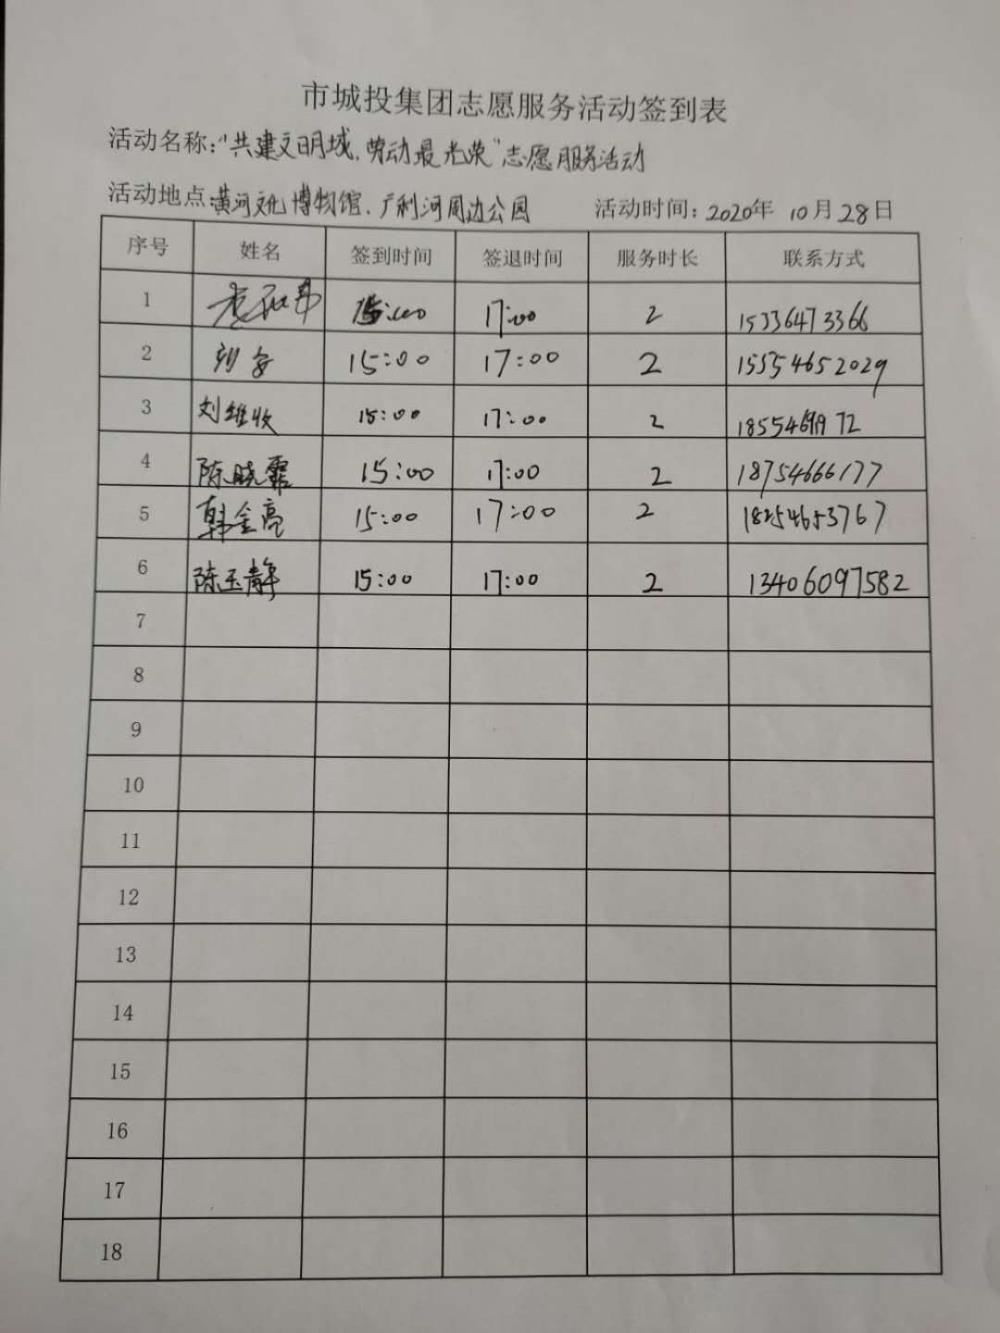 市城投集团志愿服务活动签到表
活动名称:"共建文明城,劳动最光荣"志愿服务活动
活动地点 黄河文化博物馆、广利河周边公园 活动时间: 2020年 10月28日
序号 姓名 签到时间 签退时间 服务时长 联系方式
1 15:00 17:00 2 15336473366
2 15:00 17:00 2 15554652029
3 刘维收 15:00 17:00 2
4 陈晓霜 15:00 17:00 2 18754666177
5 韩金亮 15:00 17:00 2 18254653767
6 陈玉静 15:00 17:00 2 13406097582
7
8
9
10
11
12
13
14
15
16
17
18